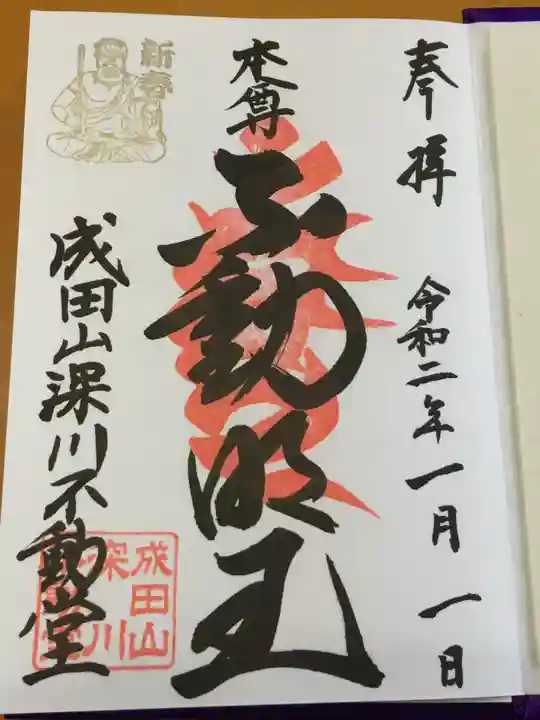 奉拝 令和二年一月一日
本尊
不動明王
新春
成田山深川不動堂
成田山
深川